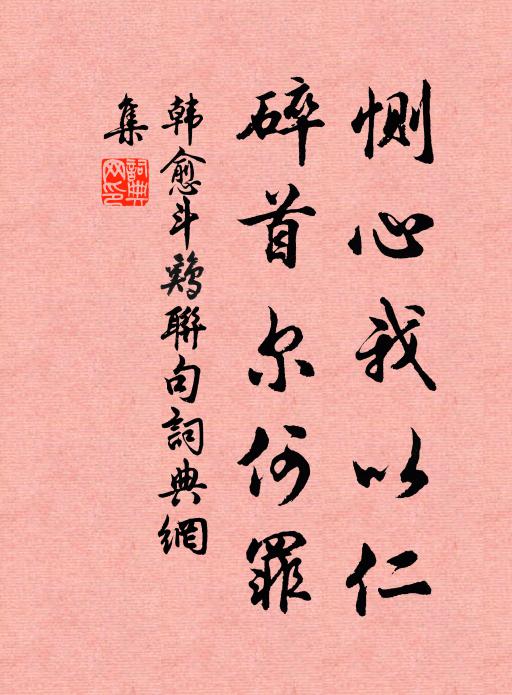 恻心我以仁
碎首尔何罪
韩愈斗鸡聯句詞典網
集
詞典网印